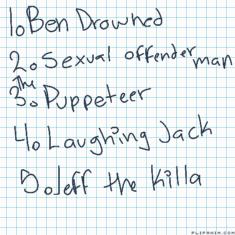 1. Ben Drowned
2. Sexual offender man
The
3. Puppeteer
4. Laughing Jack
5. Jeff the Killa
FLIPANIM.COM